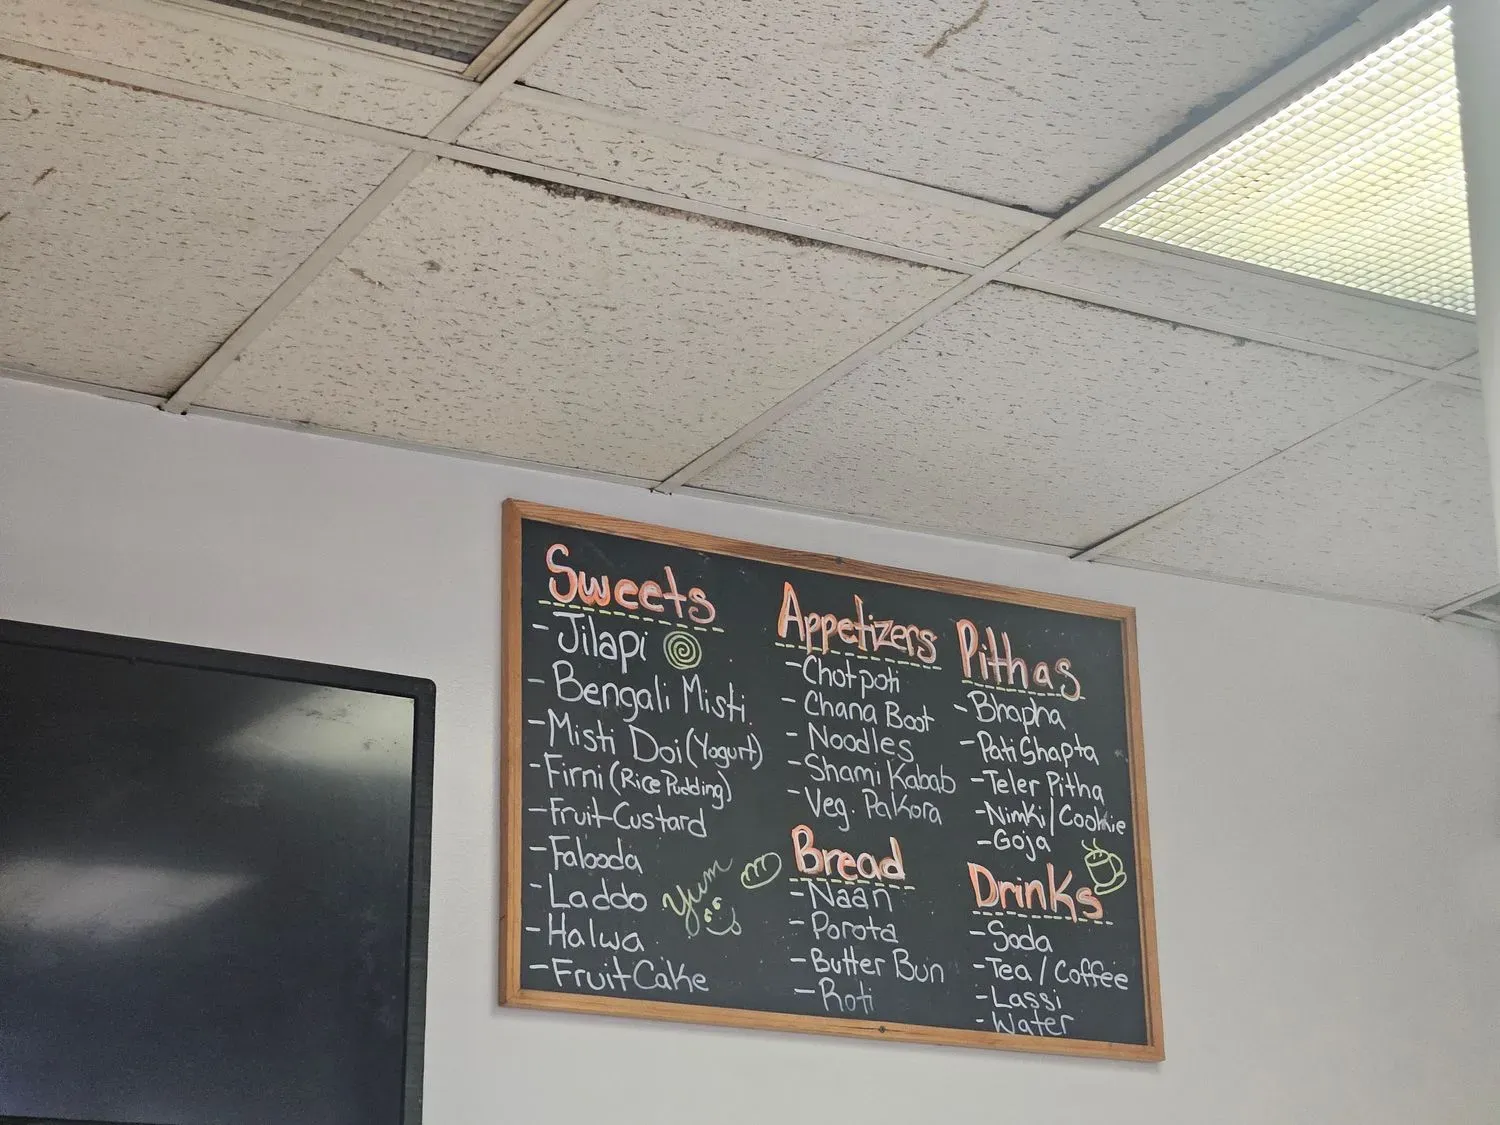 Sweets
- Jilapi
- Bengali Misti
- Misti Doi (Yogurt)
- Firni (Rice Pudding)
- Fruit Custard
- Falooda
- Laddo
- Halwa
- Fruit Cake
Yum
Appetizers
- Chotpoti
- Chana Boot
- Noodles
- Shami Kabab
- Veg. Pakora
Bread
- Naan
- Porota
- Butter Bun
- Roti
Pithas
- Bhapha
- Pati Shapta
- Teler Pitha
- Nimki / Cookie
- Goja
Drinks
- Soda
- Tea / Coffee
- Lassi
- Water